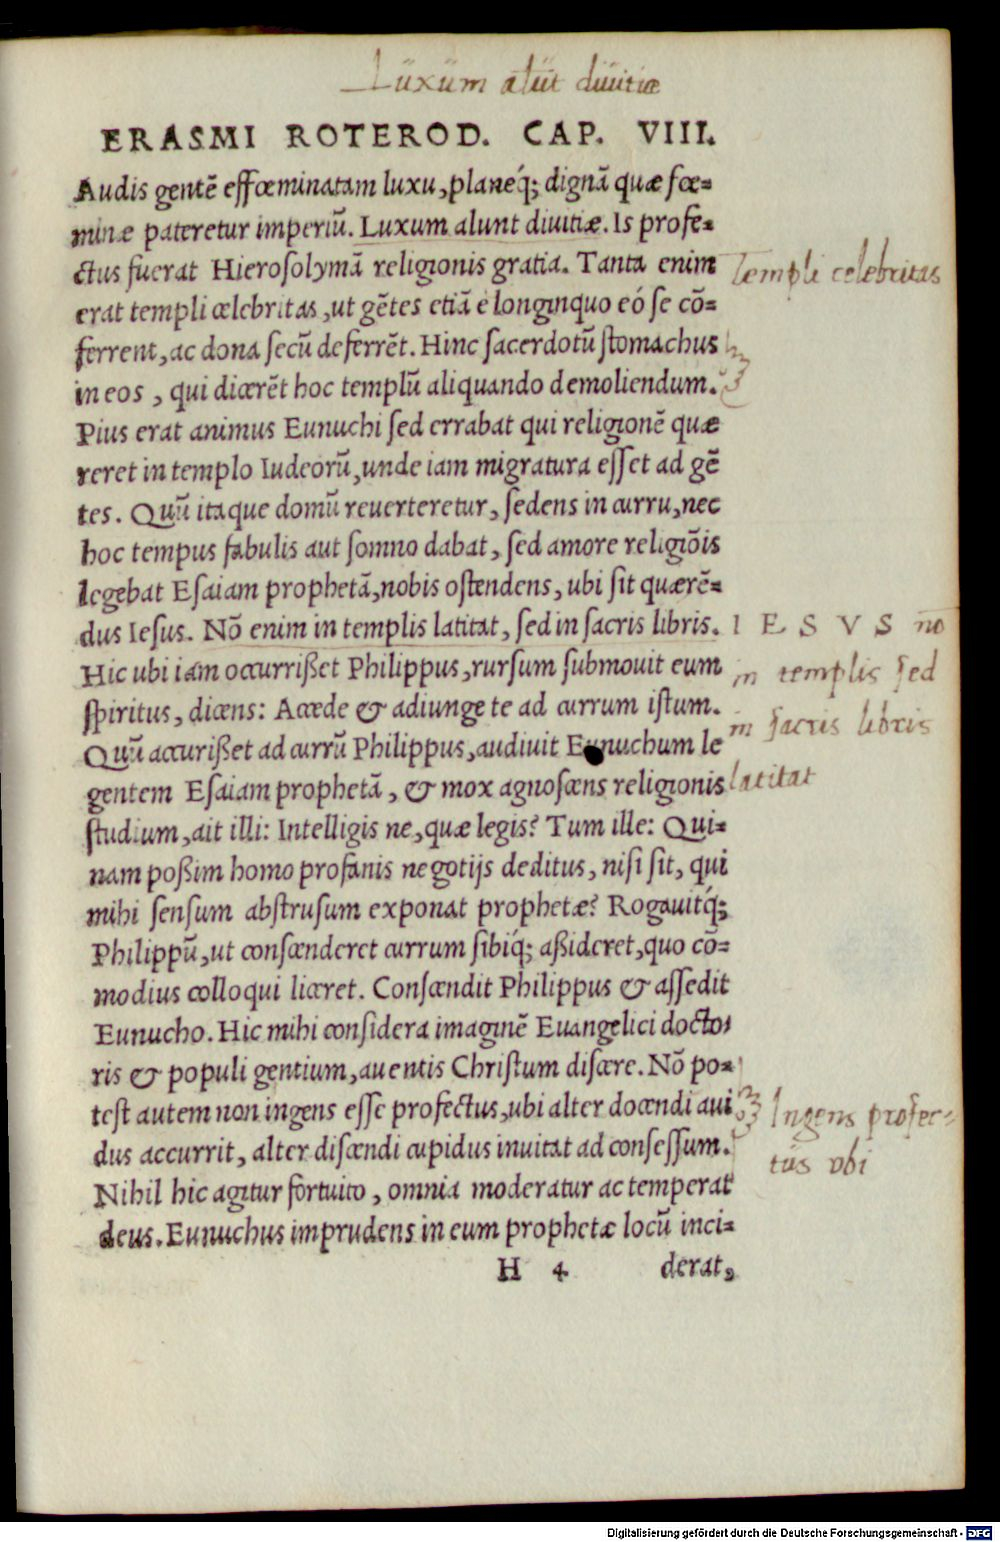 Luxum alūt diuitiæ
ERASMI ROTEROD. CAP. VIII.
Audis gentē effœminatam luxu, planeq́; dignā quæ fœ=
minæ pateretur imperiū. Luxum alunt diuitiæ. Is profe=
ctus fuerat Hierosolymā religionis gratia. Tanta enim
Templi celebritas
erat templi celebritas, ut gētes etiā e longinquo eó se cō=
ferrent, ac dona secū deferrēt. Hinc sacerdotū stomachus
in eos, qui dicerēt hoc templū aliquando demoliendum.
Pius erat animus Eunuchi sed errabat qui religionē quæ
reret in templo Iudeorū, unde iam migratura esset ad gē
tes. Quū itaque domū reuerteretur, sedens in curru, nec
hoc tempus fabulis aut somno dabat, sed amore religiōis
legebat Esaiam prophetā, nobis ostendens, ubi sit quærē=
dus Iesus. Nō enim in templis latitat, sed in sacris libris.
IESVS nō
in templis sed
in sacris libris
latitat
Hic ubi iam occurrißet Philippus, rursum submouit eum
spiritus, dicens: Accede & adiunge te ad currum istum.
Quū accurißet ad currū Philippus, audiuit Eunuchum le
gentem Esaiam prophetā, & mox agnoscens religionis
studium, ait illi: Intelligis ne, quæ legis? Tum ille: Qui=
nam poßim homo profanis negotijs deditus, nisi sit, qui
mihi sensum abstrusum exponat prophetæ? Rogauitq́;
Philippū, ut conscenderet currum sibiq́; aßideret, quo cō=
modius colloqui liceret. Conscendit Philippus & assedit
Eunucho. Hic mihi considera imaginē Euangelici docto=
ris & populi gentium, auentis Christum discere. Nō po=
test autem non ingens esse profectus, ubi alter docendi aui
Ingens profec=
tus vbi
dus accurrit, alter discendi cupidus inuitat ad consessum.
Nihil hic agitur fortuito, omnia moderatur ac temperat
deus. Eunuchus imprudens in eum prophetæ locū inci=
H 4 derat,
Digitalisierung gefördert durch die Deutsche Forschungsgemeinschaft - DFG